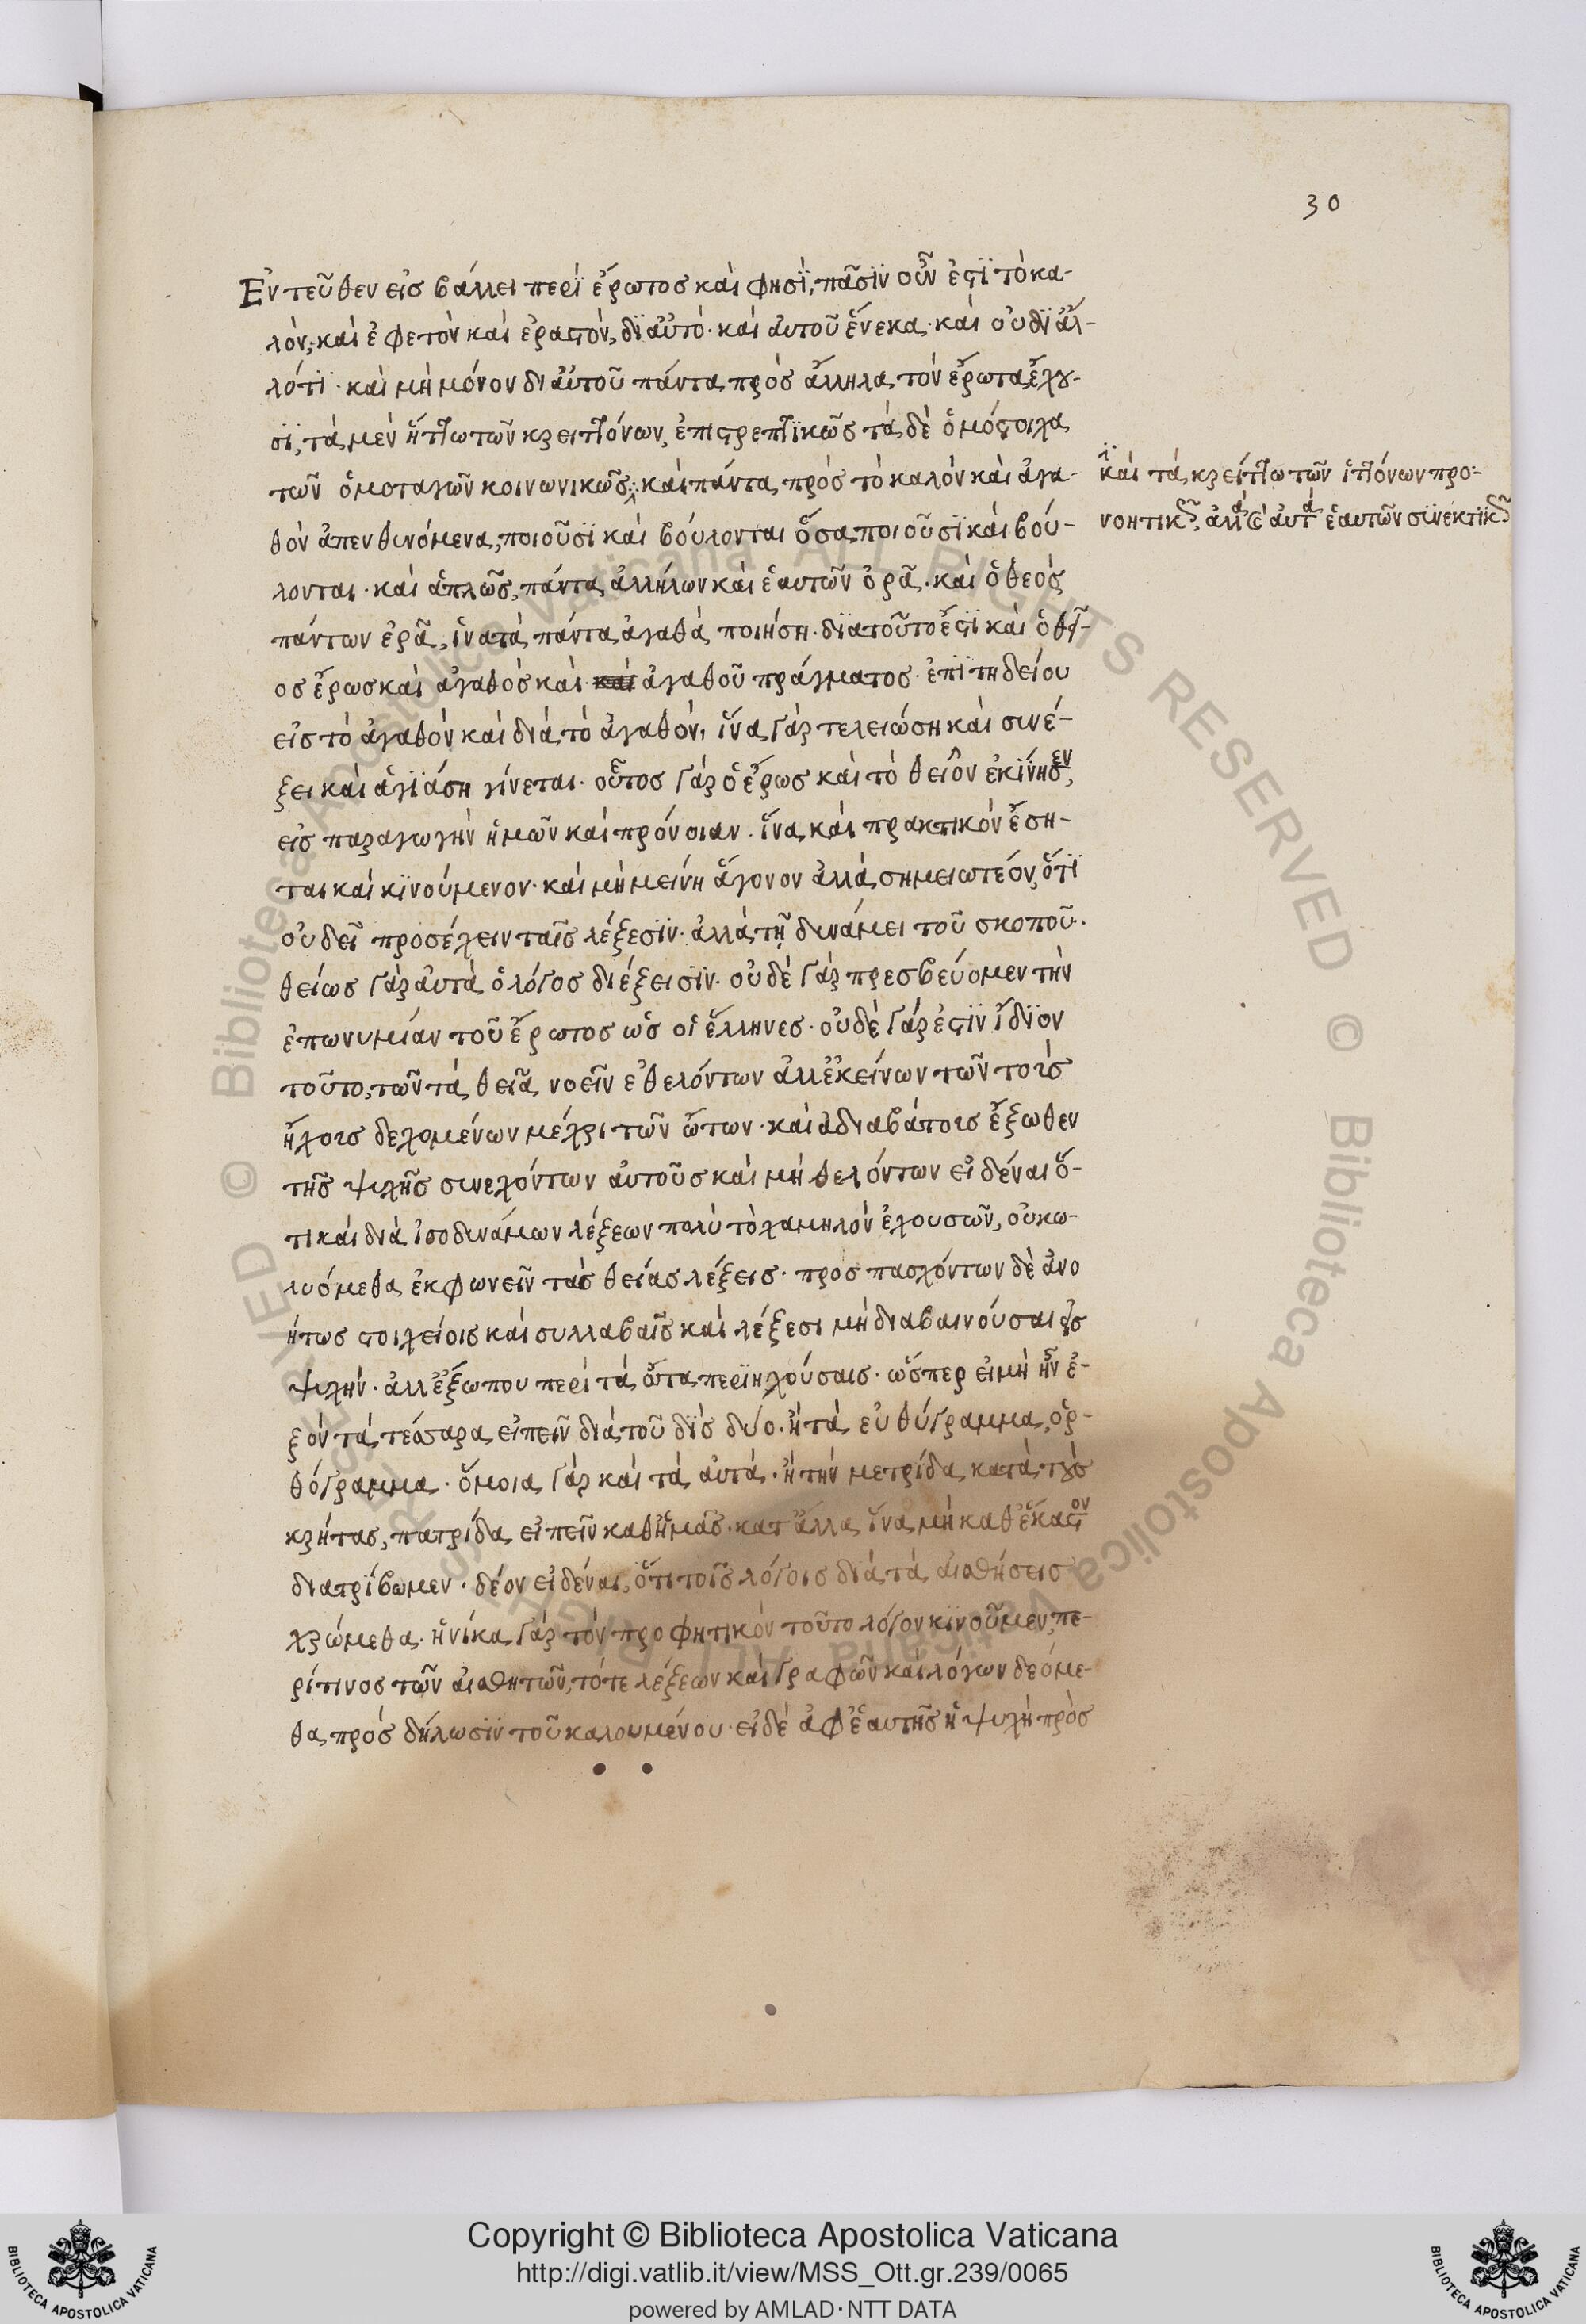 30
Ἐντεῦθεν εἰσβάλλει περὶ ἔρωτος καὶ φησὶ, πᾶσιν οὖν ἐστὶ τὸ κα-
λὸν, καὶ ἐφετὸν καὶ ἐραστὸν, δι αὐτό· καὶ αυτοῦ ἕνεκα· καὶ οὐ δι ἄλ-
λό τι· καὶ μὴ μόνον δι αὐτοῦ πάντα πρὸς ἄλληλα τὸν ἔρωτα ἔχου-
σι, τὰ μὲν ἥττω τῶν κρειττόνων, ἐπιστρεπτικῶς τὰ δὲ ὁμόστοιχα
τῶν ὁμοταγῶν κοινωνικῶς· καὶ πάντα πρὸς τὸ καλὸν καὶ ἀγα-
καὶ τὰ κρείττω τῶν ἡττόνων προ-
νοητικῶς, ἀλλὰ αὐτὰ ἑαυτῶν συνεκτικῶς
θὸν ἀπενθυνόμενα, ποιοῦσι καὶ βούλονται ὅσα ποιοῦσι καὶ βού-
λονται· καὶ ἁπλῶς, πάντα ἀλλήλων καὶ ἑαυτῶν ἐρᾶ· καὶ ὁ θεὸς
πάντων ἐρᾶ, ἵνα τὰ πάντα ἀγαθὰ ποιήση· διατοῦτο ἐστὶ καὶ ὁ θεῖ-
ος ἔρως καὶ ἀγαθὸς καὶ καὶ ἀγαθοῦ πράγματος· ἐπιτηδείου
εἰς τὸ ἀγαθὸν καὶ διὰ τὸ ἀγαθὸν, ἵνα γὰρ τελειώση καὶ συνέ-
ξει καὶ ἁγιάση γίνεται· οὗτος γὰρ ὁ ἔρως καὶ τὸ θεῖον ἐκίνησεν,
εἰς παραγωγὴν ἡμῶν καὶ πρόνοιαν· ἵνα καὶ πρακτικὸν ἔση-
ται καὶ κινούμενον· καὶ μὴ μείνη ἄγονον ἀλλὰ σημειωτέον, ὅτι
οὐ δεῖ προσέχειν ταῖς λέξεσιν· ἀλλὰ τῇ δυνάμει τοῦ σκοποῦ·
θείως γὰρ αὐτὰ ὁ λόγος διέξεισιν· οὐδὲ γὰρ πρεσβεύομεν τὴν
ἐπωνυμίαν τοῦ ἔρωτος ὡς οἱ ἕλληνες· οὐδὲ γάρ ἐστιν ἴδιον
τοῦτο, τῶν τὰ θεῖα νοεῖν ἐθελόντων ἀλλ ἐκείνων τῶν τοῖς
ἤχοις δεχομένων μέχρι τῶν ὤτων· καὶ ἀδιαβάτοις ἔξωθεν
τῆς ψυχῆς συνεχόντων αὐτοὺς καὶ μὴ θελόντων εἰδέναι ὅ-
τι καὶ διὰ ἰσοδυνάμων λέξεων πολὺ τὸ χαμηλὸν ἐχουσῶν, οὐ κω-
λυόμεθα ἐκφωνεῖν τὰς θείας λέξεις· προσπασχόντων δὲ ἀνο
ήτως στοιχείοις καὶ συλλαβαῖς καὶ λέξεσι μὴ διαβαινούσαι εἰς
ψυχήν· ἀλλ ἔξω που περὶ τὰ ὦτα περιηχούσαις· ὥσπερ εἰ μὴ ἦν ἐ-
ξὸν τὰ τέσσαρα εἰπεῖν διὰ τοῦ δὶς δύο· ἢ τὰ εὐθύγραμμα, ὀρ-
θόγραμμα· ὅμοια γὰρ καὶ τὰ αὐτά· ἢ τὴν μετρίδα κατὰ τοὺς
κρήτας, πατρίδα εἰπεῖν καθ ἡμᾶς· κατ ἄλλα ἵνα μὴ καθ ἕκαστον
διατρίβωμεν· δέον εἰδέναι, ὅτι τοῖς λόγοις διὰ τὰ αἰσθήσεις
χρώμεθα· ἡνίκα γὰρ τὸν προφητικὸν τοῦτο λόγον κινοῦμεν, πε-
ρί τινος τῶν αἰσθητῶν, τότε λέξεων καὶ γραφῶν καὶ λόγων δεόμε-
θα, πρὸς δήλωσιν τοῦ καλουμένου· εἰ δὲ ἀφ ἑαυτῆς ἡ ψυχὴ πρὸς
Copyright © Biblioteca Apostolica Vaticana
http://digi.vatlib.it/view/MSS_Ott.gr.239/0065
powered by AMLAD·NTT DATA